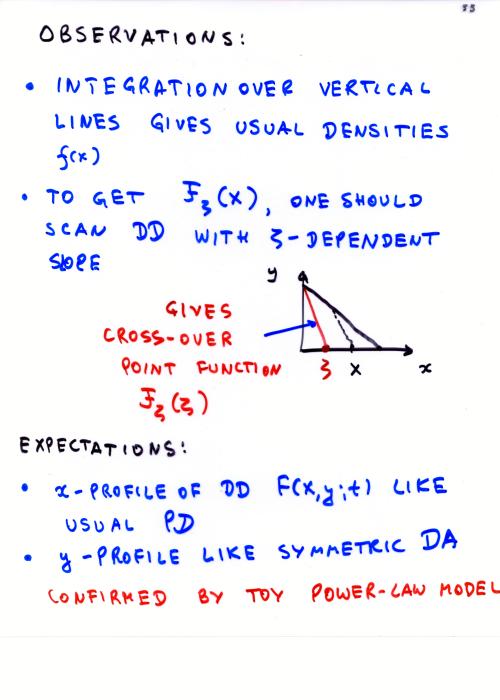 35
OBSERVATIONS:
• INTEGRATION OVER VERTICAL
LINES GIVES USUAL DENSITIES
f(x)
• TO GET Ƒ_ζ(X), ONE SHOULD
SCAN DD WITH ζ-DEPENDENT
SLOPE
y
GIVES
CROSS-OVER
POINT FUNCTION
Ƒ_ζ(ζ)
ζ X x
EXPECTATIONS:
• x-PROFILE OF DD F(X,y;t) LIKE
USUAL PD
• y-PROFILE LIKE SYMMETRIC DA
CONFIRMED BY TOY POWER-LAW MODEL